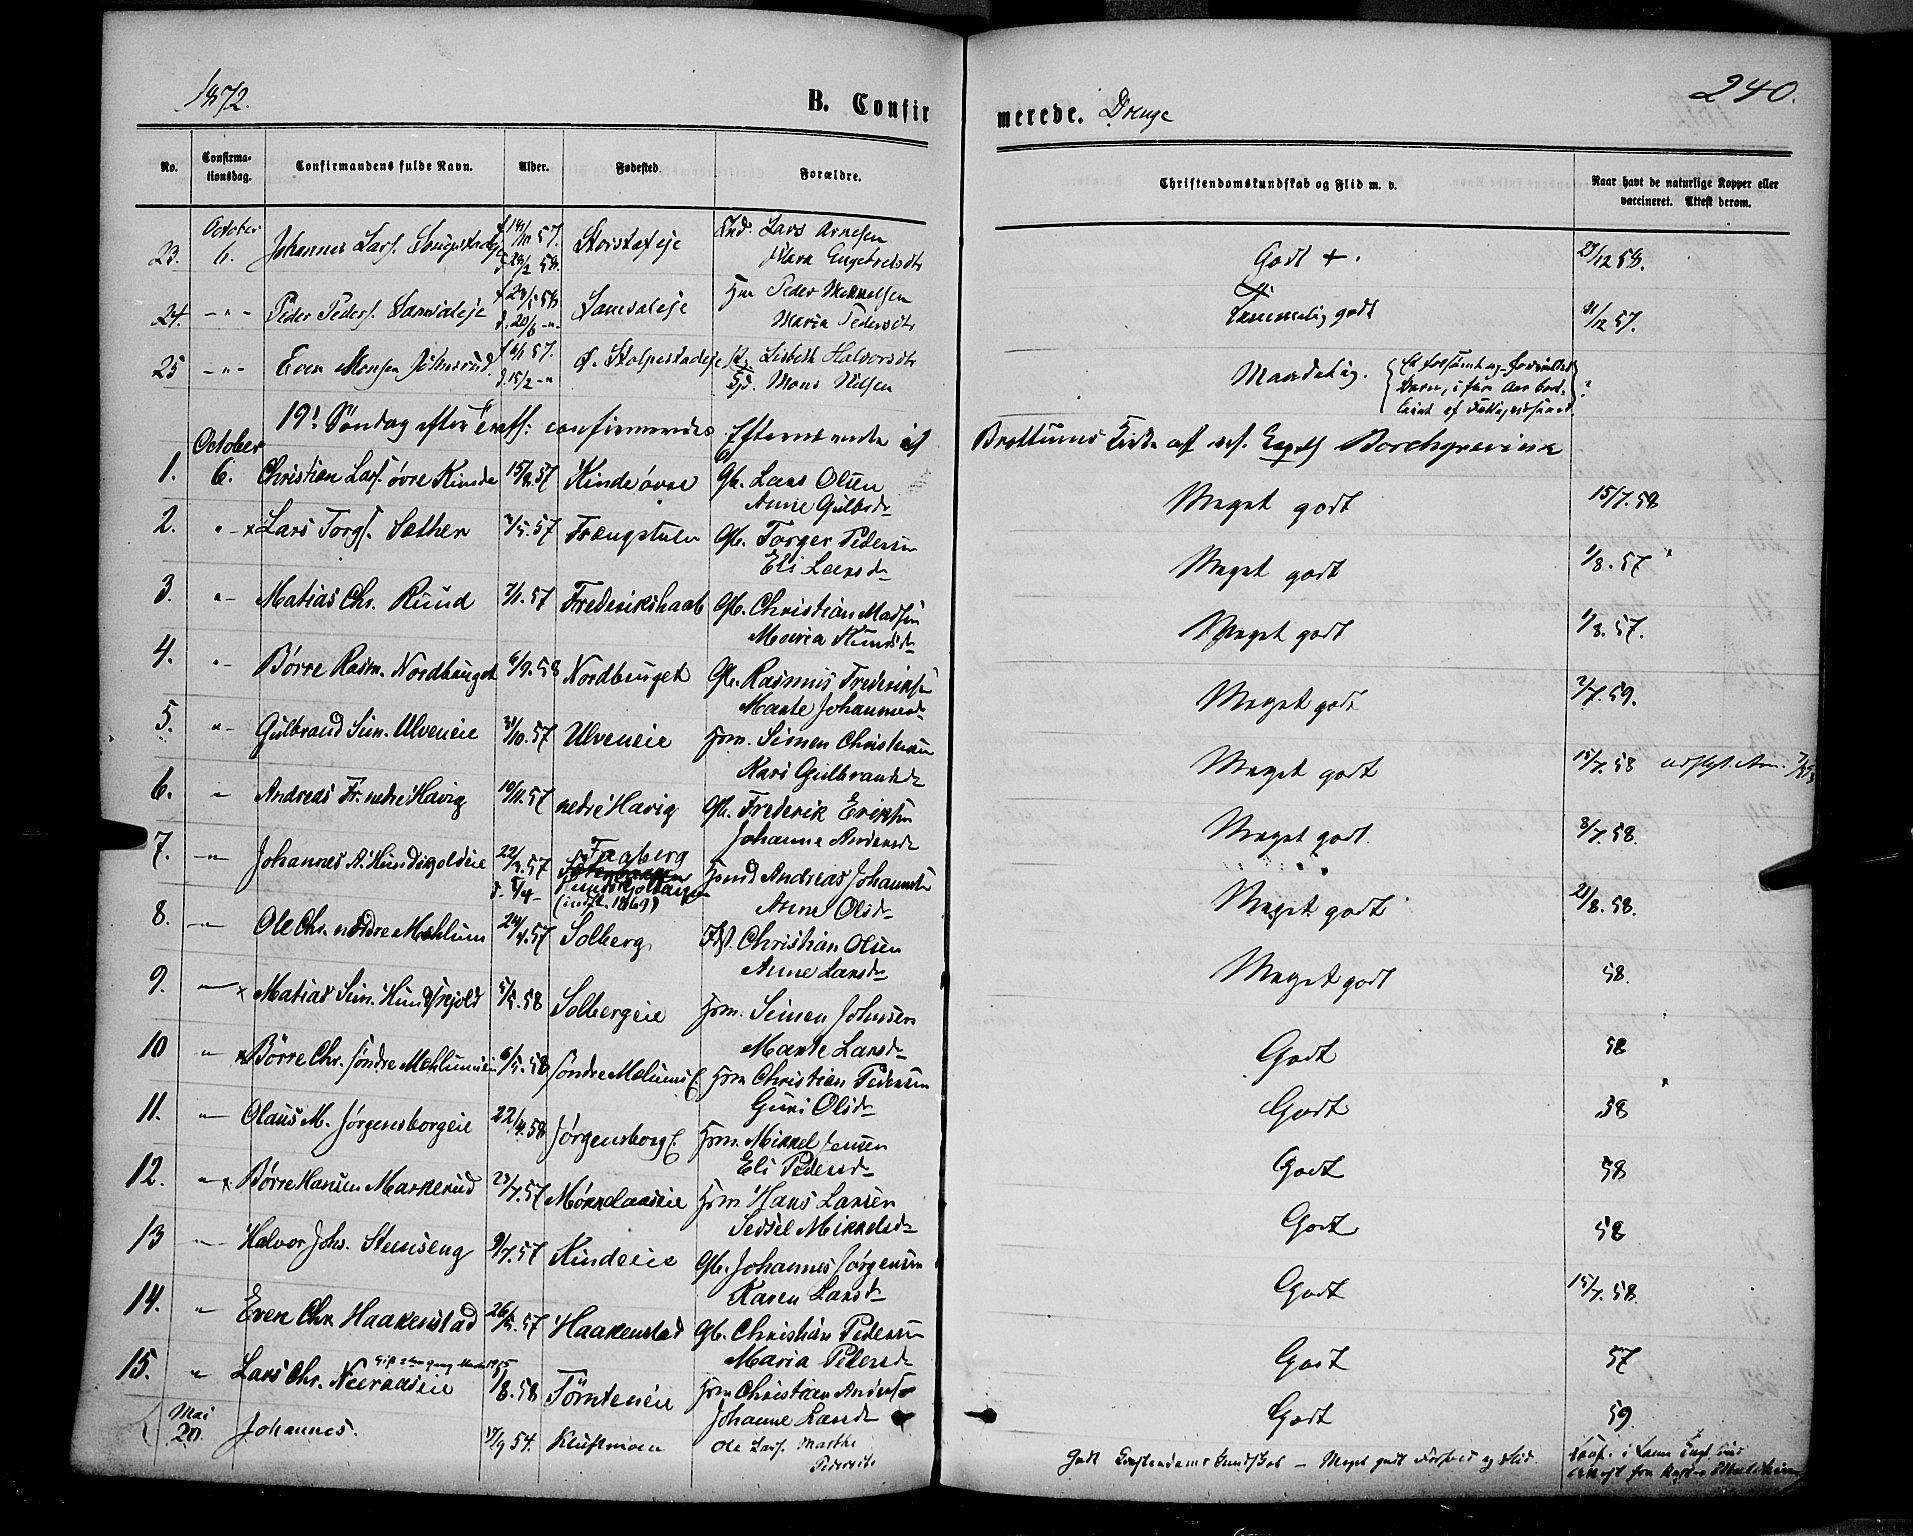 1872.
B. Confirmerede. Drenge
240.
No. Confirmationsdag. Confirmandens fulde Navn. Alder. Fødested. Forældre. Christendomskundskab og Flid m. v. Naar havt de naturlige Kopper eller vaccineret. Attest derom.
23. October 6. Johannes Lars. f 57. d 28/2 58. Lars Arnesen Godt +. 58.
24. - " - Peder Peders. d. 20/6 - " - Peder Mikkelsen
Maria Pedersdtr Temmelig godt 31/12 57.
25 - " - Even Monsen 57. d. 15/2 - " Ø. Lisbeth Halvorsdtr
Mons Nilsen Maadelig.
19. Søndag efter confirmeredes Efternævnte i Brøttums Kirke af Borchgrevink
1. October 6. Christian Lars. øvre Kinde 57 Kinde øvre Gb. Lars Olsen
Anne Gulbrd. Meget godt 15/7. 58
2. " - x Lars Torg. Sæther /5. 57 Gb. Torger Pedersen
Eli Larsd. Meget godt 1/8. 57
3. " - Matias Chr. Ruud 7/1. 57 Frederikshaab Gb. Christian Madsen
Maria Meget godt 1/8. 57.
4. " - Børre Rasm. Nordbruget 6/9. 58 Nordbruget Gb. Rasmus Frederiksen
Marte Johannesd. Meget godt 2/7. 59.
5. " - Gulbrand Sim. Ulveneie 31/10. 57 Ulveneie Hsm. Simen Christensen
Kari Gulbrandsd. Meget godt 15/7. 58
6. " Andreas Fr. nedre Havig 10/11. 57 nedre Havig Gb. Frederik Eriksen
Johanne Andersd. Meget godt. 8/7. 58.
7. " Johannes A. Hundskjoldeie 22/3. 57 d. 5/4 - Faaberg
(indfl. 1869) Andreas Johannesen
Anne Olsd. Meget godt 21/8. 58.
8. - " - Ole Chr. nordre Mehlum 24/4. 57 Solberg Christian Olsen
Anne Larsd. Meget godt 58.
9. - " x Matias Sim. Hundskjold 5/5. 58 Solbergeie Hsm. Simen Johnsen
Marte Larsd. Godt 58
10 " x Børre Chr. søndre Mehlumeie 6/5. 58 søndre Melums E. Hsm Christian Pedersen
Guri Olsd. Godt 58
11. " Olaus M. Jørgensborgeie 22/4. 58 Jørgensborg E. Hsm. Mikkel Jensen
Eli Pedersd. Godt 58
12. " x Børre Hansen Markerud 23/7. 57 Hsm Hans Larsen
Sidsel Mikkelsd. Godt 58
13 " Halvor Johs. Stenseng 9/7. 57 Kindeeie Gb. Johannes Jørgensen
Karen Larsd. Godt 15/7. 58.
14. " Even Chr. Haakenstad 26/5. 57 Haakenstad Gb. Christian Pedersen
Maria Pedersd. Godt 57
15. " Lars Chr. Neeraaseie 1/8. 58 Hsm Christian Anders.
Johanne Larsd. Godt 59.
Mai 20. Johannes. 17/9 54. Kluftmoen Ole Lars. Marthe
Pedersdtr Godt Christendoms kundskab - Meget godt Forhold og Flid